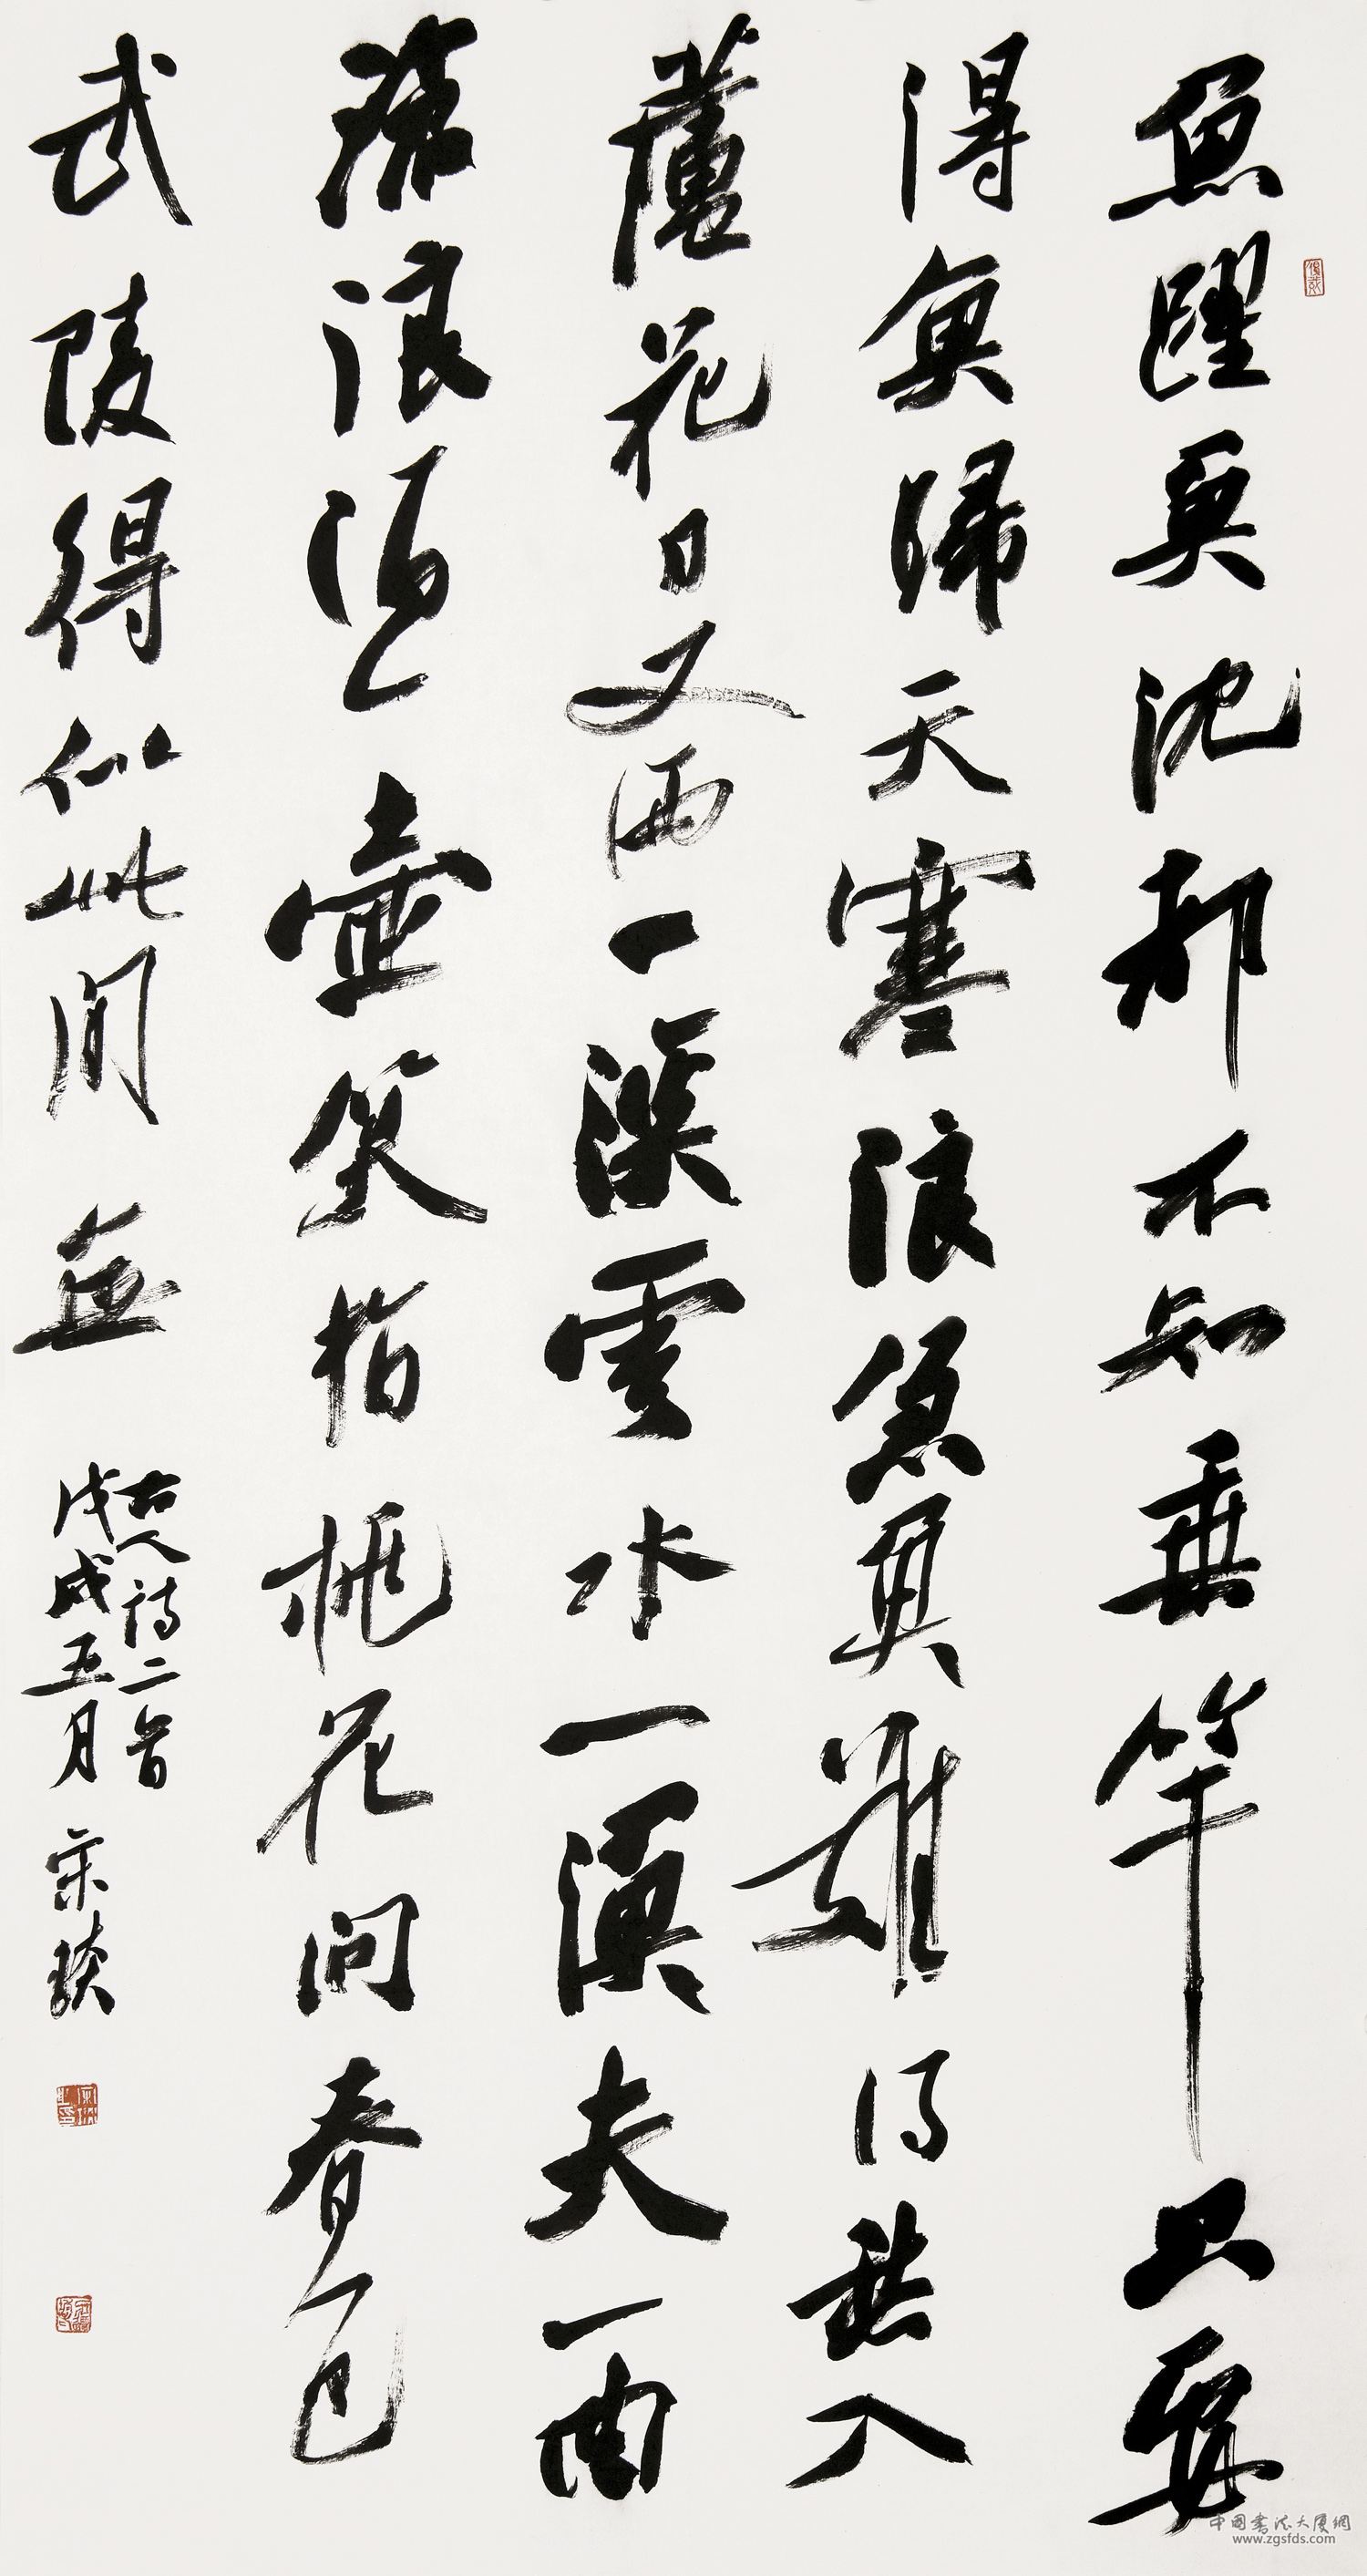 魚躍魚沈都不知垂竿只要
得魚歸天寒浪急魚難得愁入
蘆花日又西一溪雲水一漁夫一曲
滄浪酒一壺笑指桃花問春色
武陵得似此間無
古人詩二首
戊戌五月
中國書法大廈網
www.zgsfds.com